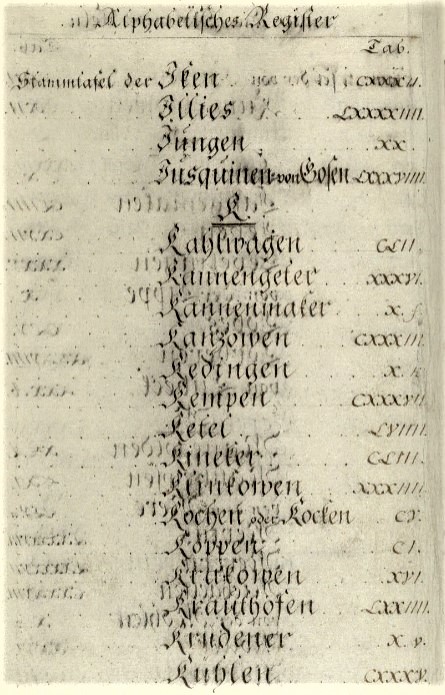 Alphabetisches Register
Tab.
Stammtafel der Iken CXXXII.
Ilies LXXXXIIII.
Jungen XX.
Jusquinen von Gosen LXXXVIIII.
K.
Kahlwagen CLII.
Kannengeter XXXVI.
Kannenmaker X. f.
Kanzowen CXXXIII.
Kedingen X. k
Kempen CXXXVII.
Ketel LVIIII.
Kineker CLIII.
Klinkowen XXXIIII.
Kochen oder Kocken CV.
Köppen CI.
Krakowen XVI.
Krauthofen LXXIIII.
Krudener X. v.
Kuhlen CXXXV.